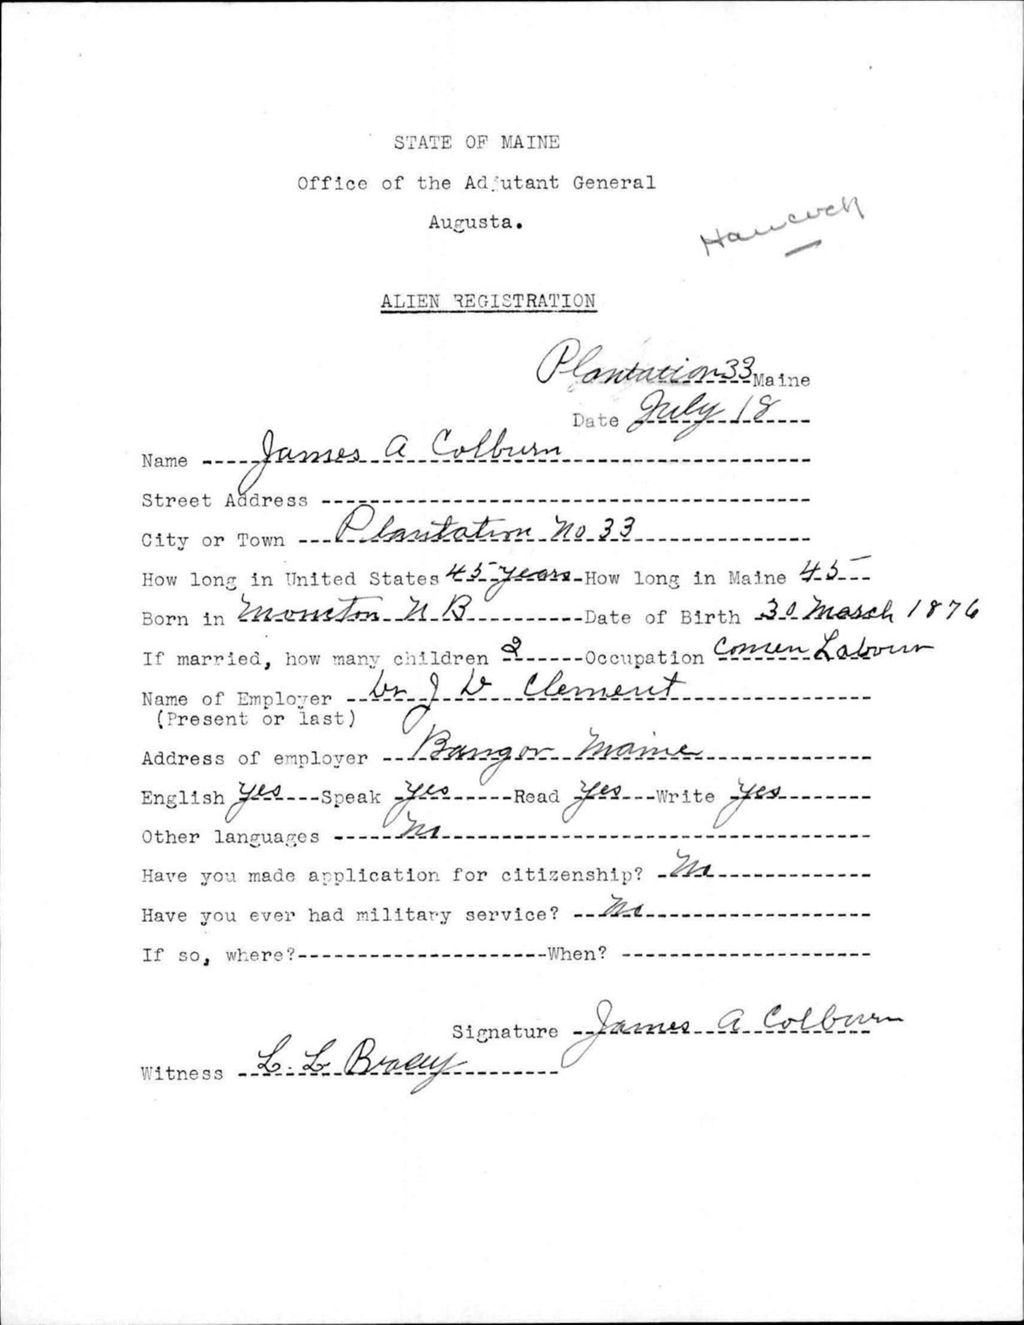 STATE OF MAINE
Office of the Adjutant General
Augusta.
Hancock
ALIEN REGISTRATION
Plantation 33 Maine
Date July 18
Name James A Colburn
Street Address
City or Town Plantation No 33
How long in United States 45 years How long in Maine 45
Born in Moncton N B Date of Birth 30 March 1876
If married, how many children 2 Occupation Comen Labourr
Name of Employer Dr J D Clement
(Present or last)
Address of employer Bangor Maine
English Yes Speak Yes Read Yes Write Yes
Other languages No
Have you made application for citizenship? No
Have you ever had military service? No
If so, where? When?
Signature James A Colburn
Witness L. L Bracy